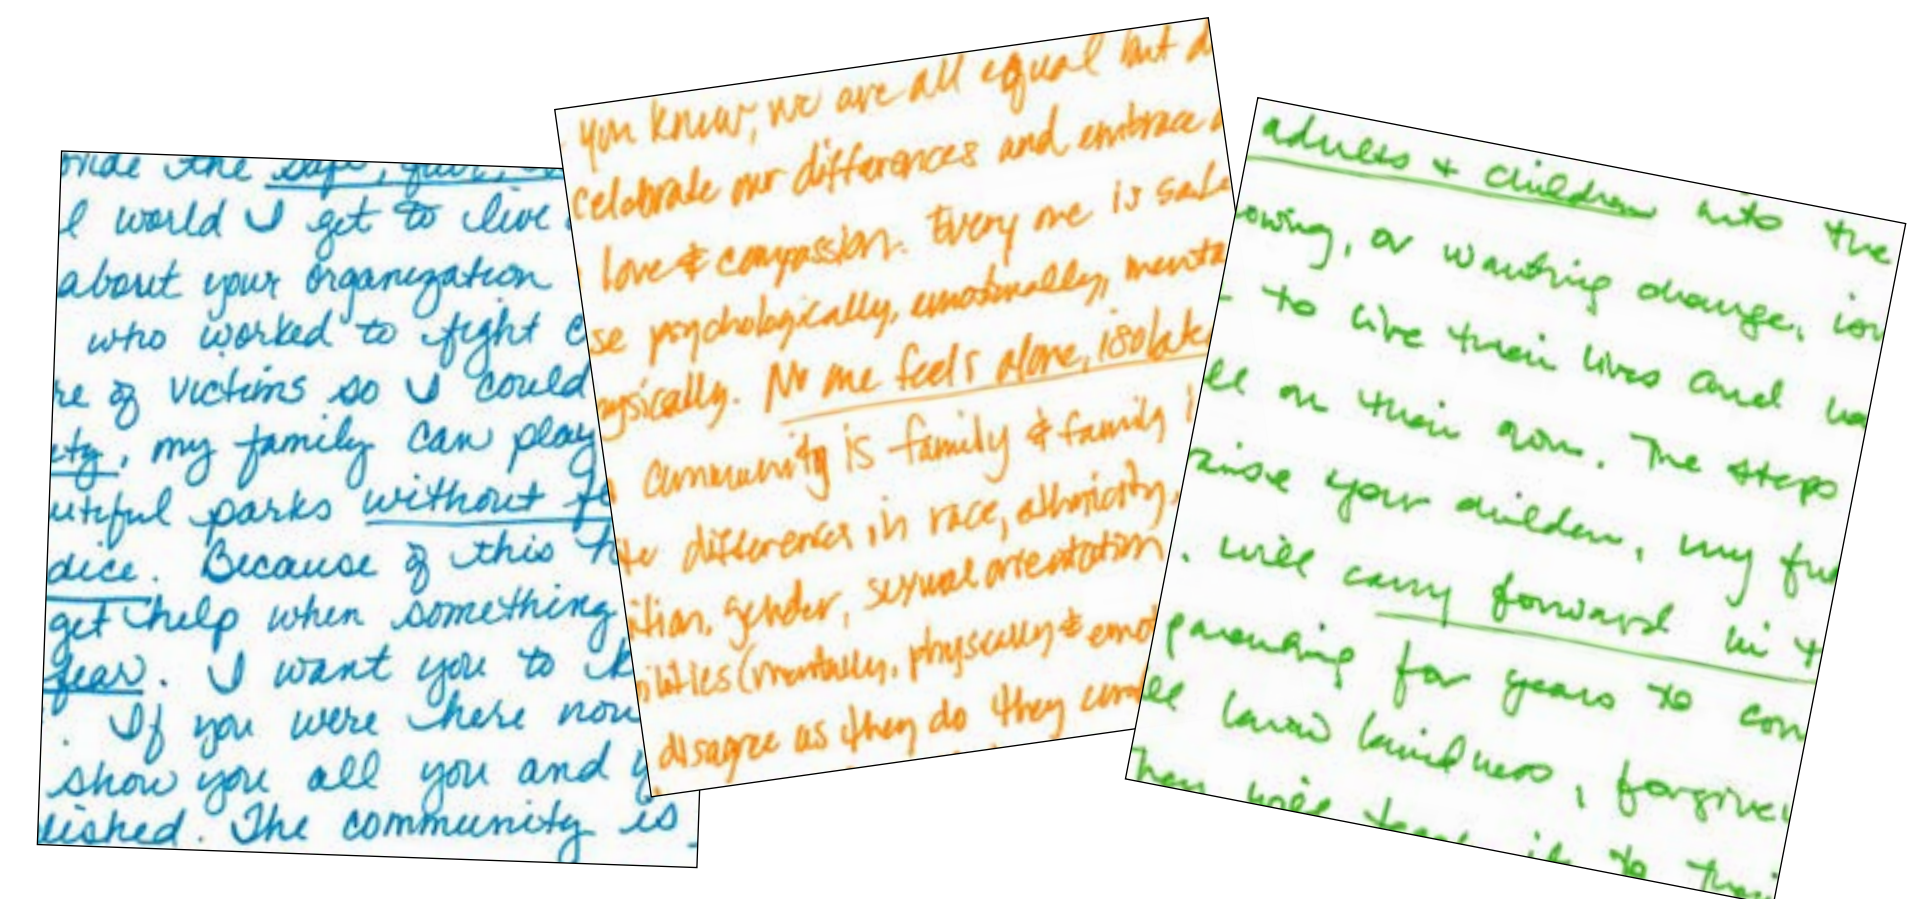 the safe,
world I get to live
about your organization
who worked to fight
of victims so I could
my family can play
parks without
Because of this
get help when something
fear. I want you to
If you were here now
show you all you and
The community is
you know, we are all equal but
celebrate our differences and embrace
love & compassion. Every one is safe
psychologically, emotionally,
No one feels alone,
community is family & family
differences in race, ethnicity,
gender, sexual orientation
(mentally, physically &
disagree as they do they
adults & children into the
or wanting change,
to live their lives and
on their own. The steps
your children, my
will carry forward in
parenting for years to
know kindness,
They will teach it to their